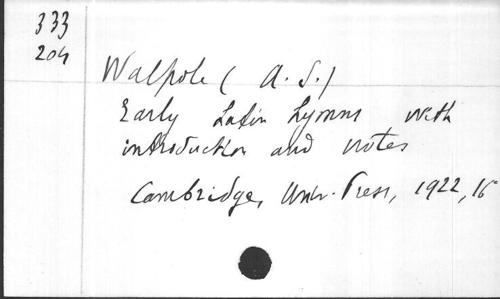 333
204
Walpole (A. S.)
Early Latin Hymns with
introduction and notes
Cambridge, Univ. Press, 1922, 16°